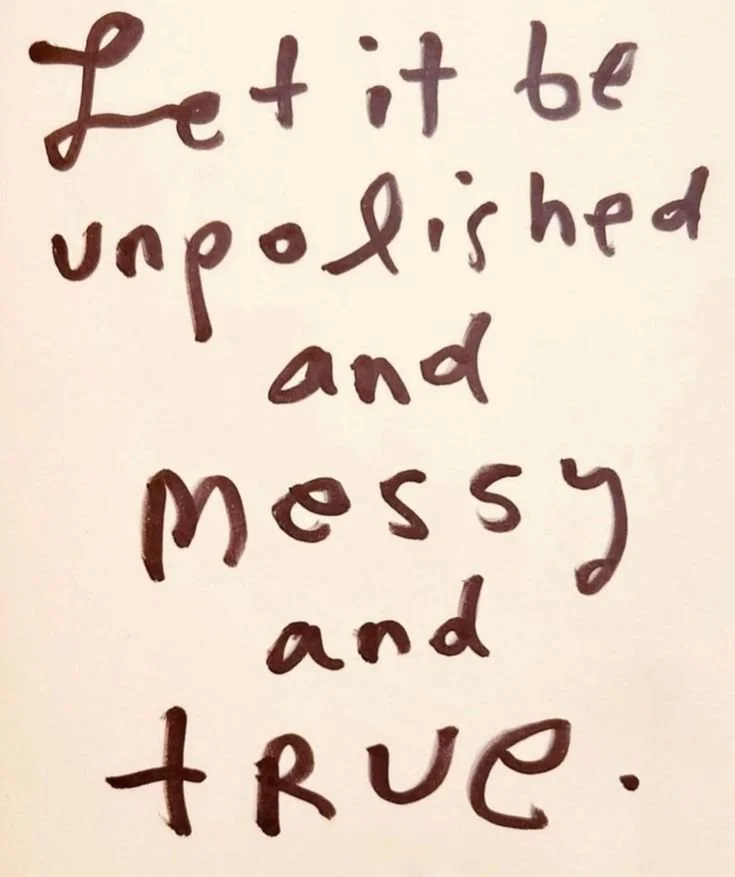 Let it be
unpolished
and
messy
and
tRUe.